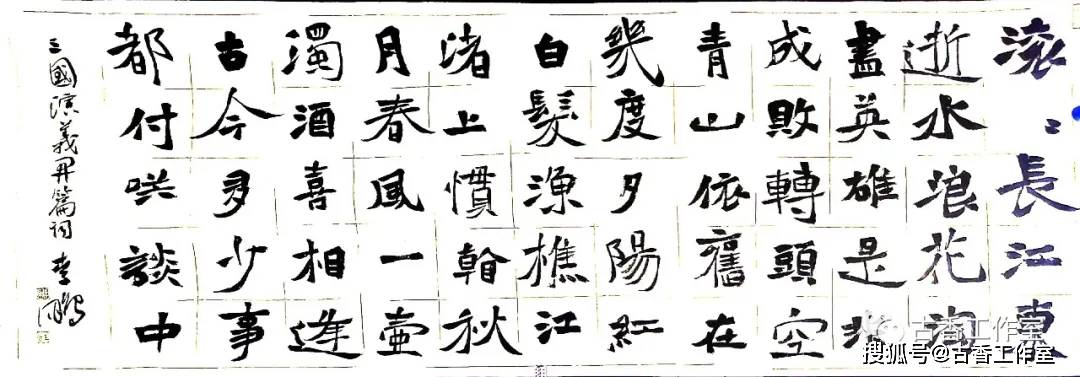 滚〻長江東
逝水浪花淘
盡英雄是非
成敗轉頭空
青山依舊在
幾度夕陽紅
白髮漁樵江
渚上慣看秋
月春風一壺
濁酒喜相逢
古今多少事
都付咲談中
三國演義開篇詞 李鵬
古香工作室
搜狐号@古香工作室